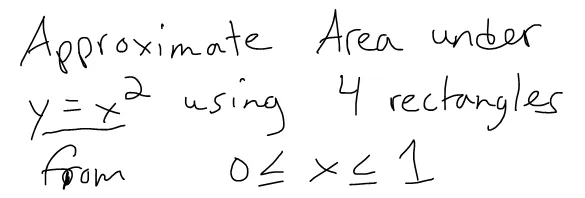 Approximate Area under
y = x² using 4 rectangles
from 0 ≤ x ≤ 1